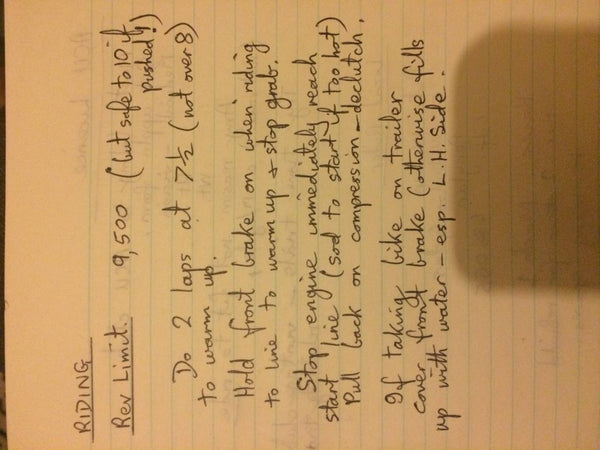 RIDING
Rev Limit. 9,500 (but safe to 10 if
pushed!)
Do 2 laps at 7½ (not over 8)
to warm up.
Hold front brake on when riding
to line to warm up & stop grab.
Stop engine immediately reach
start line (sod to start if too hot)
Pull back on compression - declutch.
If taking bike on trailer
cover front brake (otherwise fills
up with water - esp. L.H. Side.